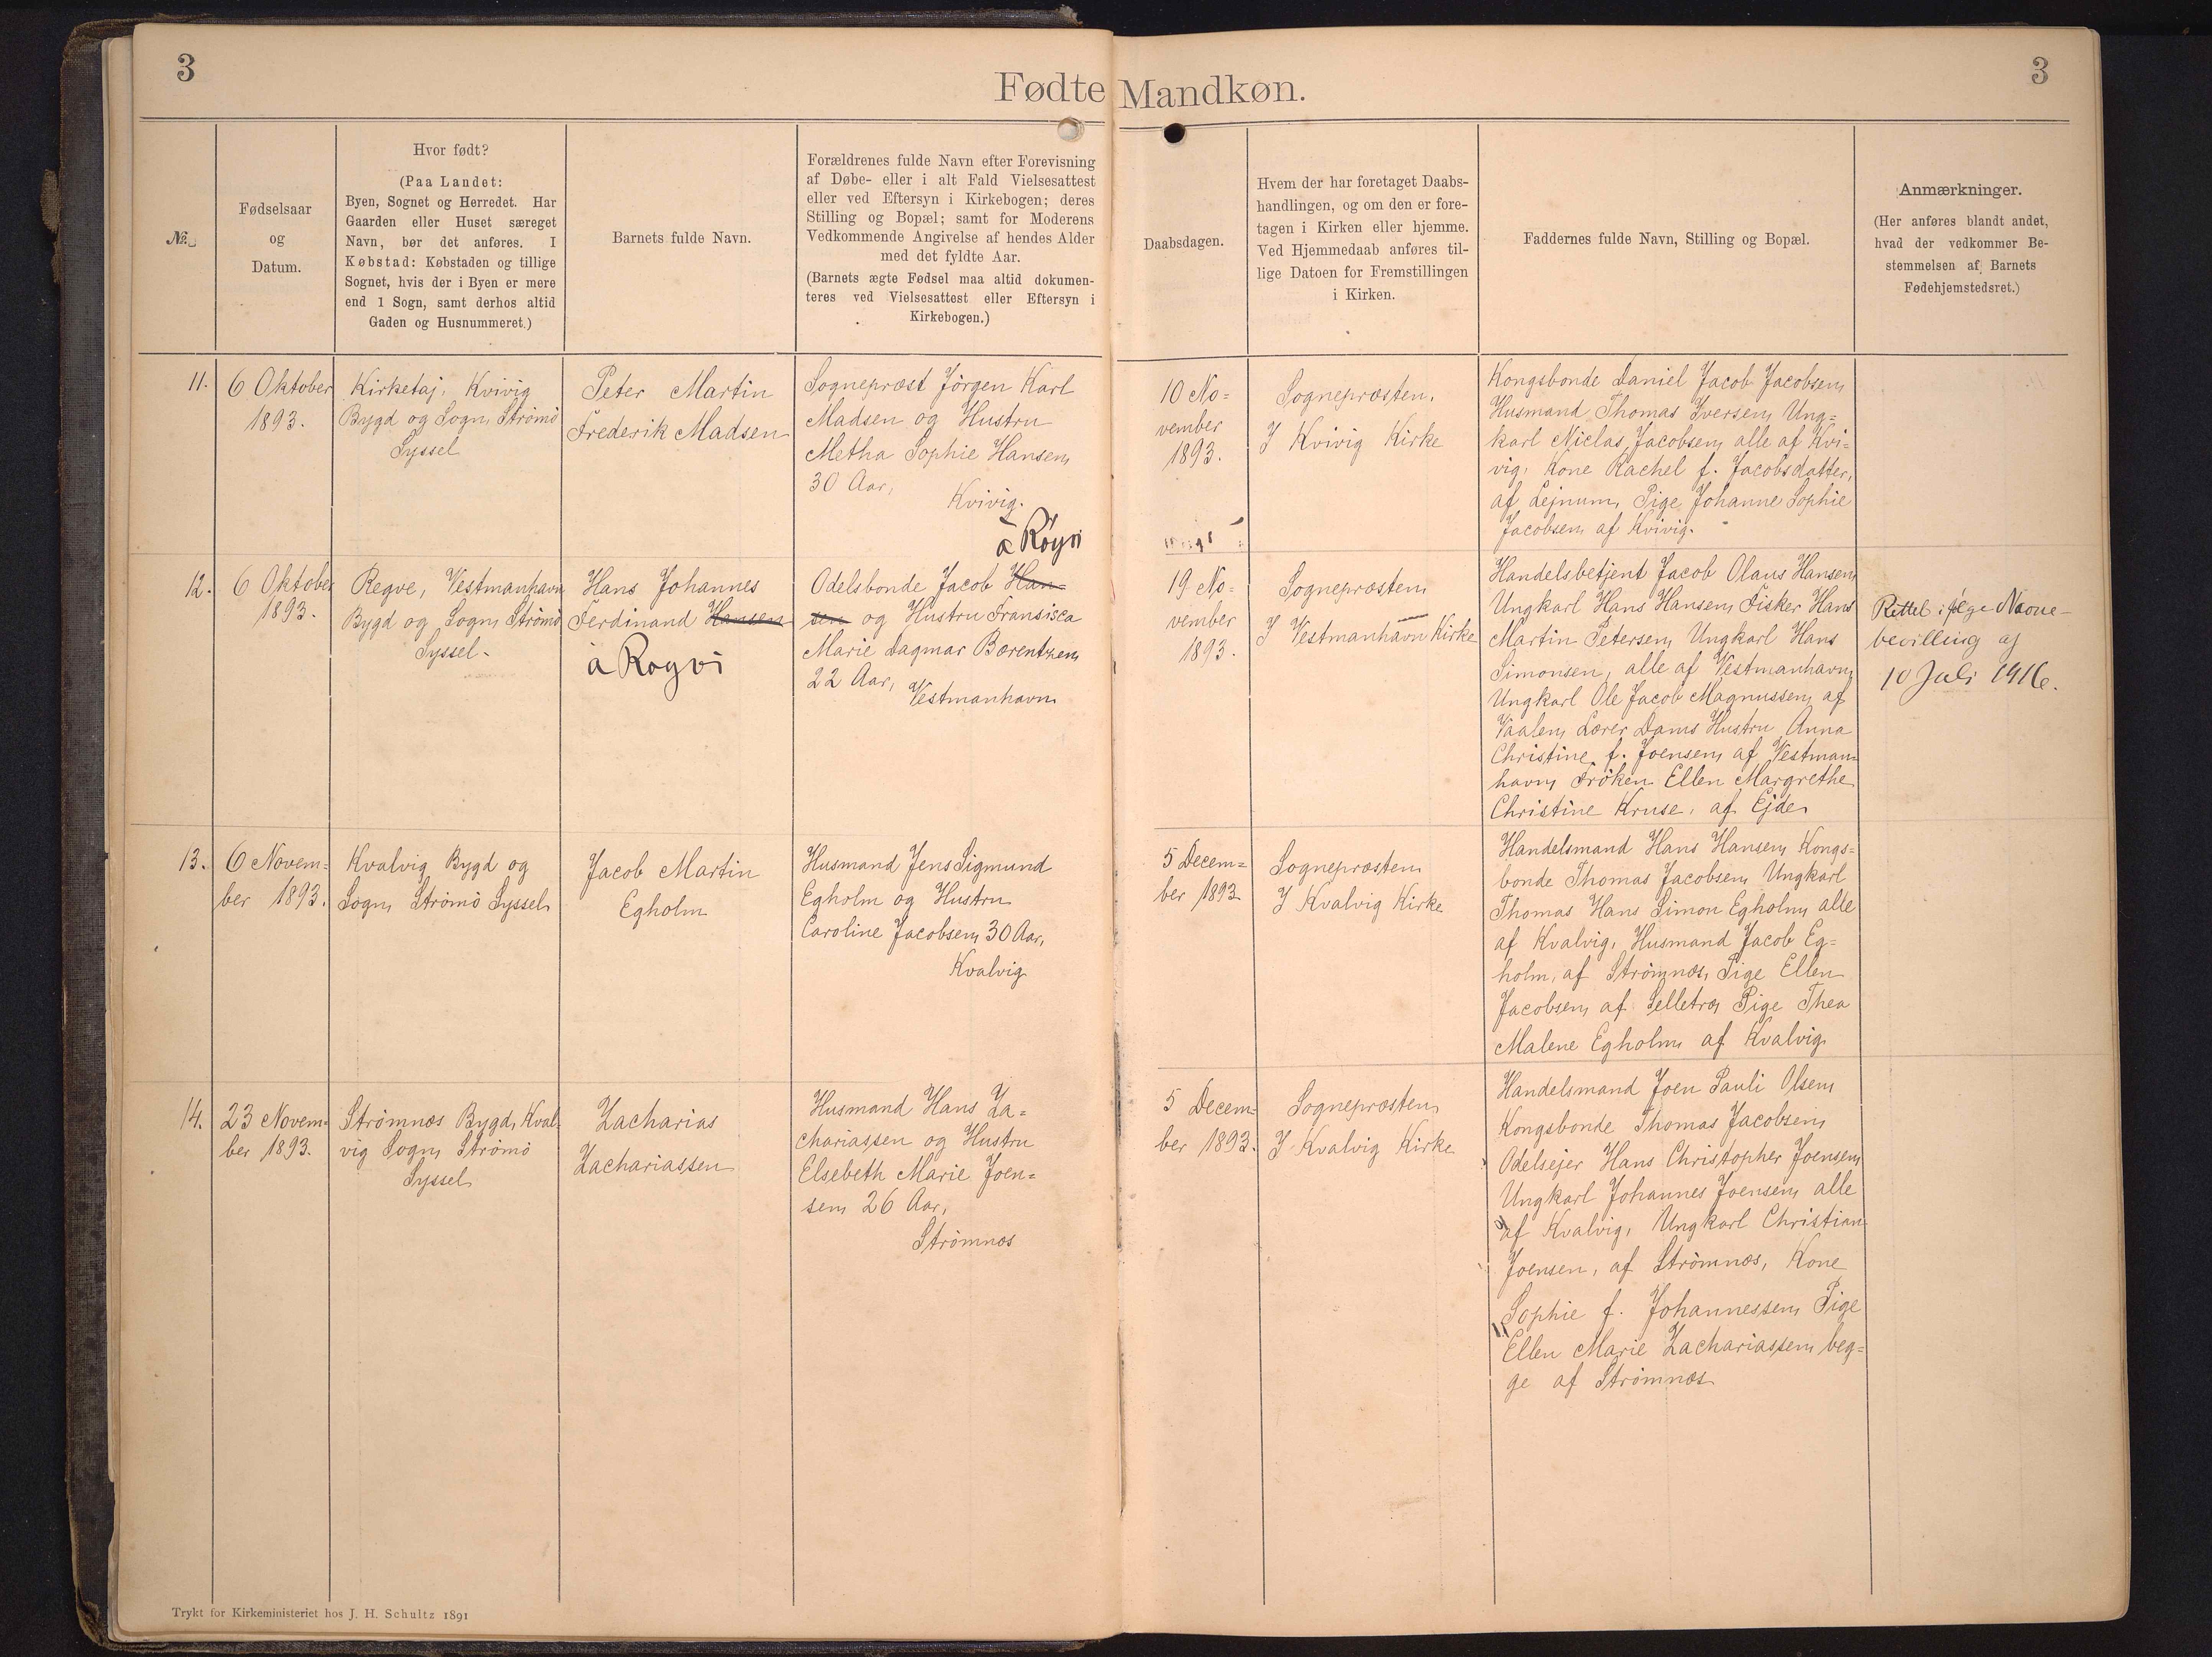 3
Fødte Mandkøn.
3
№
Fødselsaar
og
Datum.
Hvor født?
(Paa Landet:
Byen, Sognet og Herredet. Har
Gaarden eller Huset særeget
Navn, bør det anføres. I
Købstad: Købstaden og tillige
Sognet, hvis der i Byen er mere
end 1 Sogn, samt derhos altid
Gaden og Husnummeret.)
Barnets fulde Navn.
Forældrenes fulde Navn efter Forevisning
af Døbe- eller i alt Fald Vielsesattest
eller ved Eftersyn i Kirkebogen; deres
Stilling og Bopæl; samt for Moderens
Vedkommende Angivelse af hendes Alder
med det fyldte Aar.
(Barnets ægte Fødsel maa altid dokumen-
teres ved Vielsesattest eller Eftersyn i
Kirkebogen.)
Daabsdagen.
Hvem der har foretaget Daabs-
handlingen, og om den er fore-
tagen i Kirken eller hjemme.
Ved Hjemmedaab anføres til-
lige Datoen for Fremstillingen
i Kirken.
Faddernes fulde Navn, Stilling og Bopæl.
Anmærkninger.
(Her anføres blandt andet,
hvad der vedkommer Be-
stemmelsen af Barnets
Fødehjemstedsret.)
11.
6 Oktober
1893.
Kirketaj, Kvivig
Bygd og Sogn, Strömö
Syssel
Peter Martin
Frederik Madsen
Sognepræst Jörgen Karl
Madsen og Hustru
Metha Sophie Hansen,
30 Aar,
Kvivig.
10 No=
vember
1893.
Sognepræsten.
I Kvivig Kirke
Kongsbonde Daniel Jacob Jacobsen,
Husmand Thomas Iversen, Ung=
karl Niclas Jacobsen, alle af Kvi=
vig, Kone Rachel f. Jacobsdatter,
af Lejnum, Pige Johanne Sophie
Jacobsen af Kvivig.
12.
6 Oktober
1893.
Regve, Vestmanhavn
Bygd og Sogn, Strömö
Syssel.
Hans Johannes
Ferdinand Hansen
à Rógvi
à Rógvi
Odelsbonde Jacob Han=
sen og Hustru Fransisca
Marie Dagmar Bærentzen,
22 Aar,
Vestmanhavn
19 No=
vember
1893.
Sognepræsten,
I Vestmanhavn Kirke
Handelsbetjent Jacob Olaus Hansen,
Ungkarl Hans Hansen, Fisker Hans
Martin Petersen, Ungkarl Hans
Simonsen, alle af Vestmanhavn,
Ungkarl Ole Jacob Magnussen, af
Vaalen, Lærer Dams Hustru Anna
Christine f. Joensen, af Vestman=
havn, Fröken Ellen Margrethe
Christine Kruse, af Ejde
Rettet ifølge Navne-
bevilling af
10 Juli 1916.
13.
6 Novem=
ber 1893.
Kvalvig Bygd og
Sogn, Strömö Syssel
Jacob Martin
Egholm
Husmand Jens Sigmund
Egholm og Hustru
Caroline Jacobsen, 30 Aar,
Kvalvig
5 Decem=
ber 1893
Sognepræsten
I Kvalvig Kirke
Handelsmand Hans Hansen, Kongs=
bonde Thomas Jacobsen, Ungkarl
Thomas Hans Simon Egholm, alle
af Kvalvig, Husmand Jacob Eg=
holm, af Strömnæs, Pige Ellen
Jacobsen, af Selletræ, Pige Thea
Malene Egholm af Kvalvig
14.
23 Novem=
ber 1893.
Strömnæs Bygd, Kval=
vig Sogn, Strömö
Syssel
Zacharias
Zachariassen
Husmand Hans Za=
chariassen og Hustru
Elsebeth Marie Joen=
sen, 26 Aar,
Strömnæs
5 Decem=
ber 1893.
Sognepræsten,
I Kvalvig Kirke
Handelsmand Joen Pauli Olsen,
Kongsbonde Thomas Jacobsen,
Odelsejer Hans Christopher Joensen,
Ungkarl Johannes Joensen, alle
af Kvalvig, Ungkarl Christian
Joensen, af Strömnæs, Kone
Sophie f. Johannessen, Pige
Ellen Marie Zachariassen, beg=
ge af Strömnæs
Trykt for Kirkeministeriet hos J. H. Schultz 1891